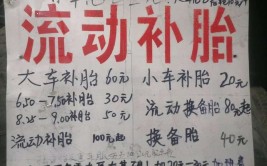 流动补胎
大车补胎 60元 小车补胎 20元
6.50-7.50补胎 30元 流动换备胎 80元起
8.25-9.00补胎 50元
流动补胎 100元起 换备胎 40元